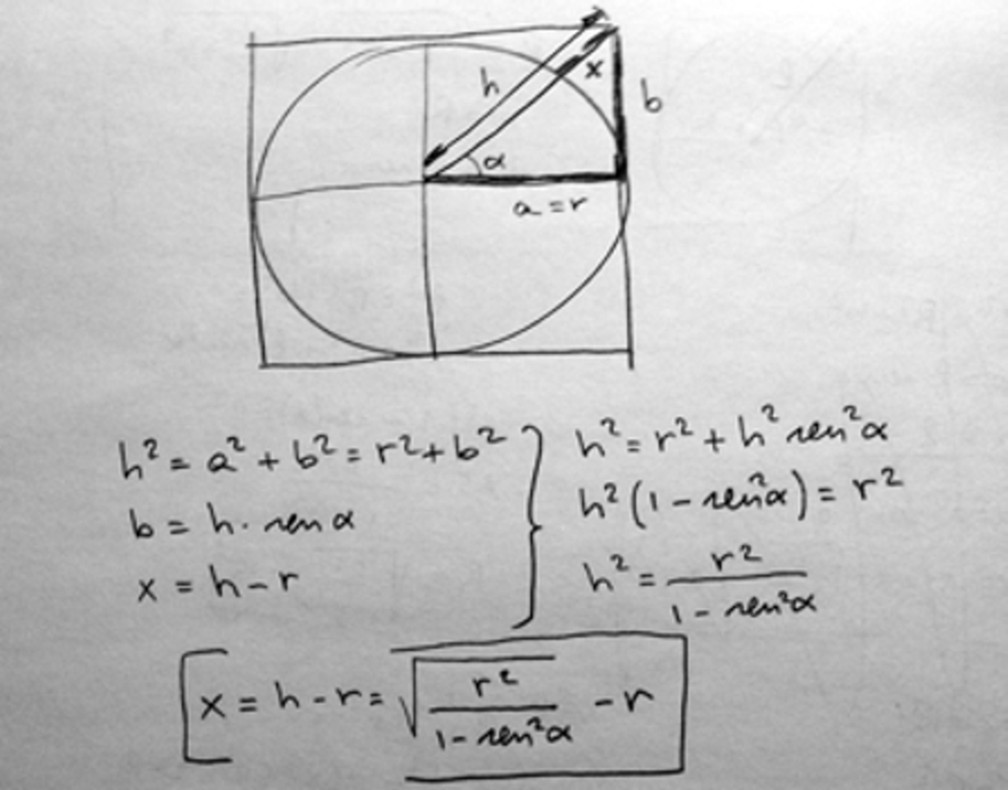 h
x
b
α
a = r
h² = a² + b² = r² + b²
b = h · sen α
x = h - r
h² = r² + h² sen²α
h² (1 - sen²α) = r²
h² = r² / 1 - sen²α
x = h - r = √ r² / 1 - sen²α - r